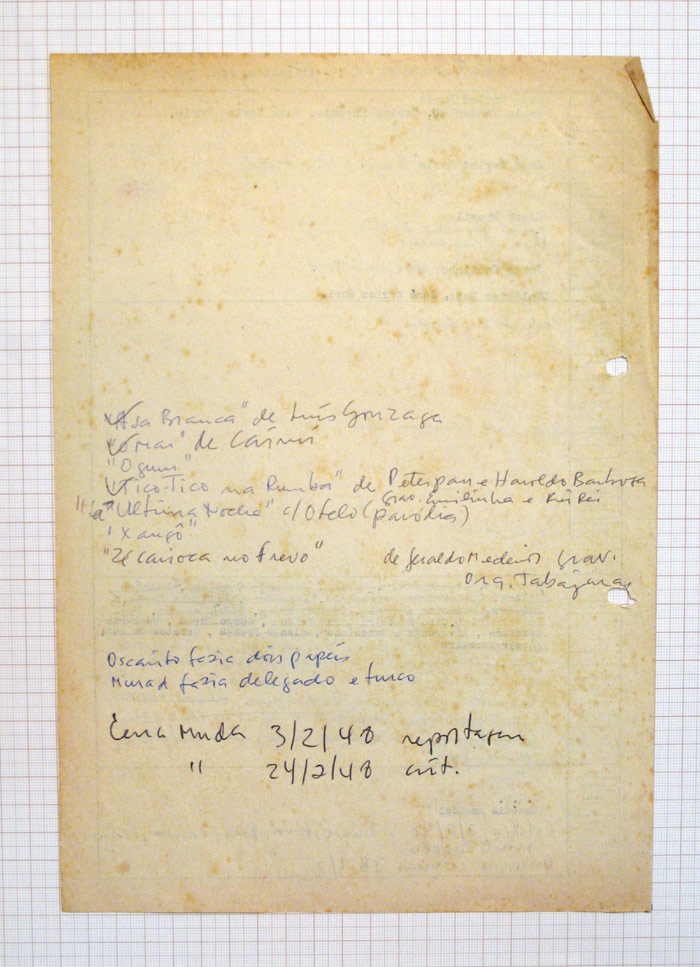 "Asa Branca" de Luís Gonzaga
"O Mar" de Caími
"Ogum"
"Tico-Tico na Rumba" de Peterpan e Haroldo Barbosa
grav. Emilinha e Rui Rei
"La Ultima Noche" c/ Otelo (paródia)
"Xangô"
"Zé Carioca no frevo" de Geraldo Medeiros grav.
Orq. Tabajara
Oscarito fazia dois papéis
Murad fazia delegado e turco
Cena Muda 3/2/48 reportagem
" 24/2/48 crít.